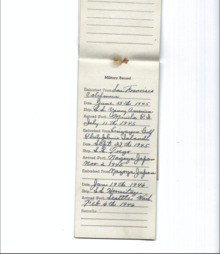 Military Record
Debarked From San Francisco
California
Date June 13th 1945
Ship S.S.
Arrived Port Manila P.I.
July 11th 1945
Debarked From Gulf
Philippine Islands
Date Sept 23th 1945
Ship S.S.
Arrived Port Nagoya Japan
Nov 2 1945
Debarked From Nagoya Japan
Date Jan 19th 1946
Ship S.S.
Arrived Port Seattle Wash
Feb 6th 1946
Remarks